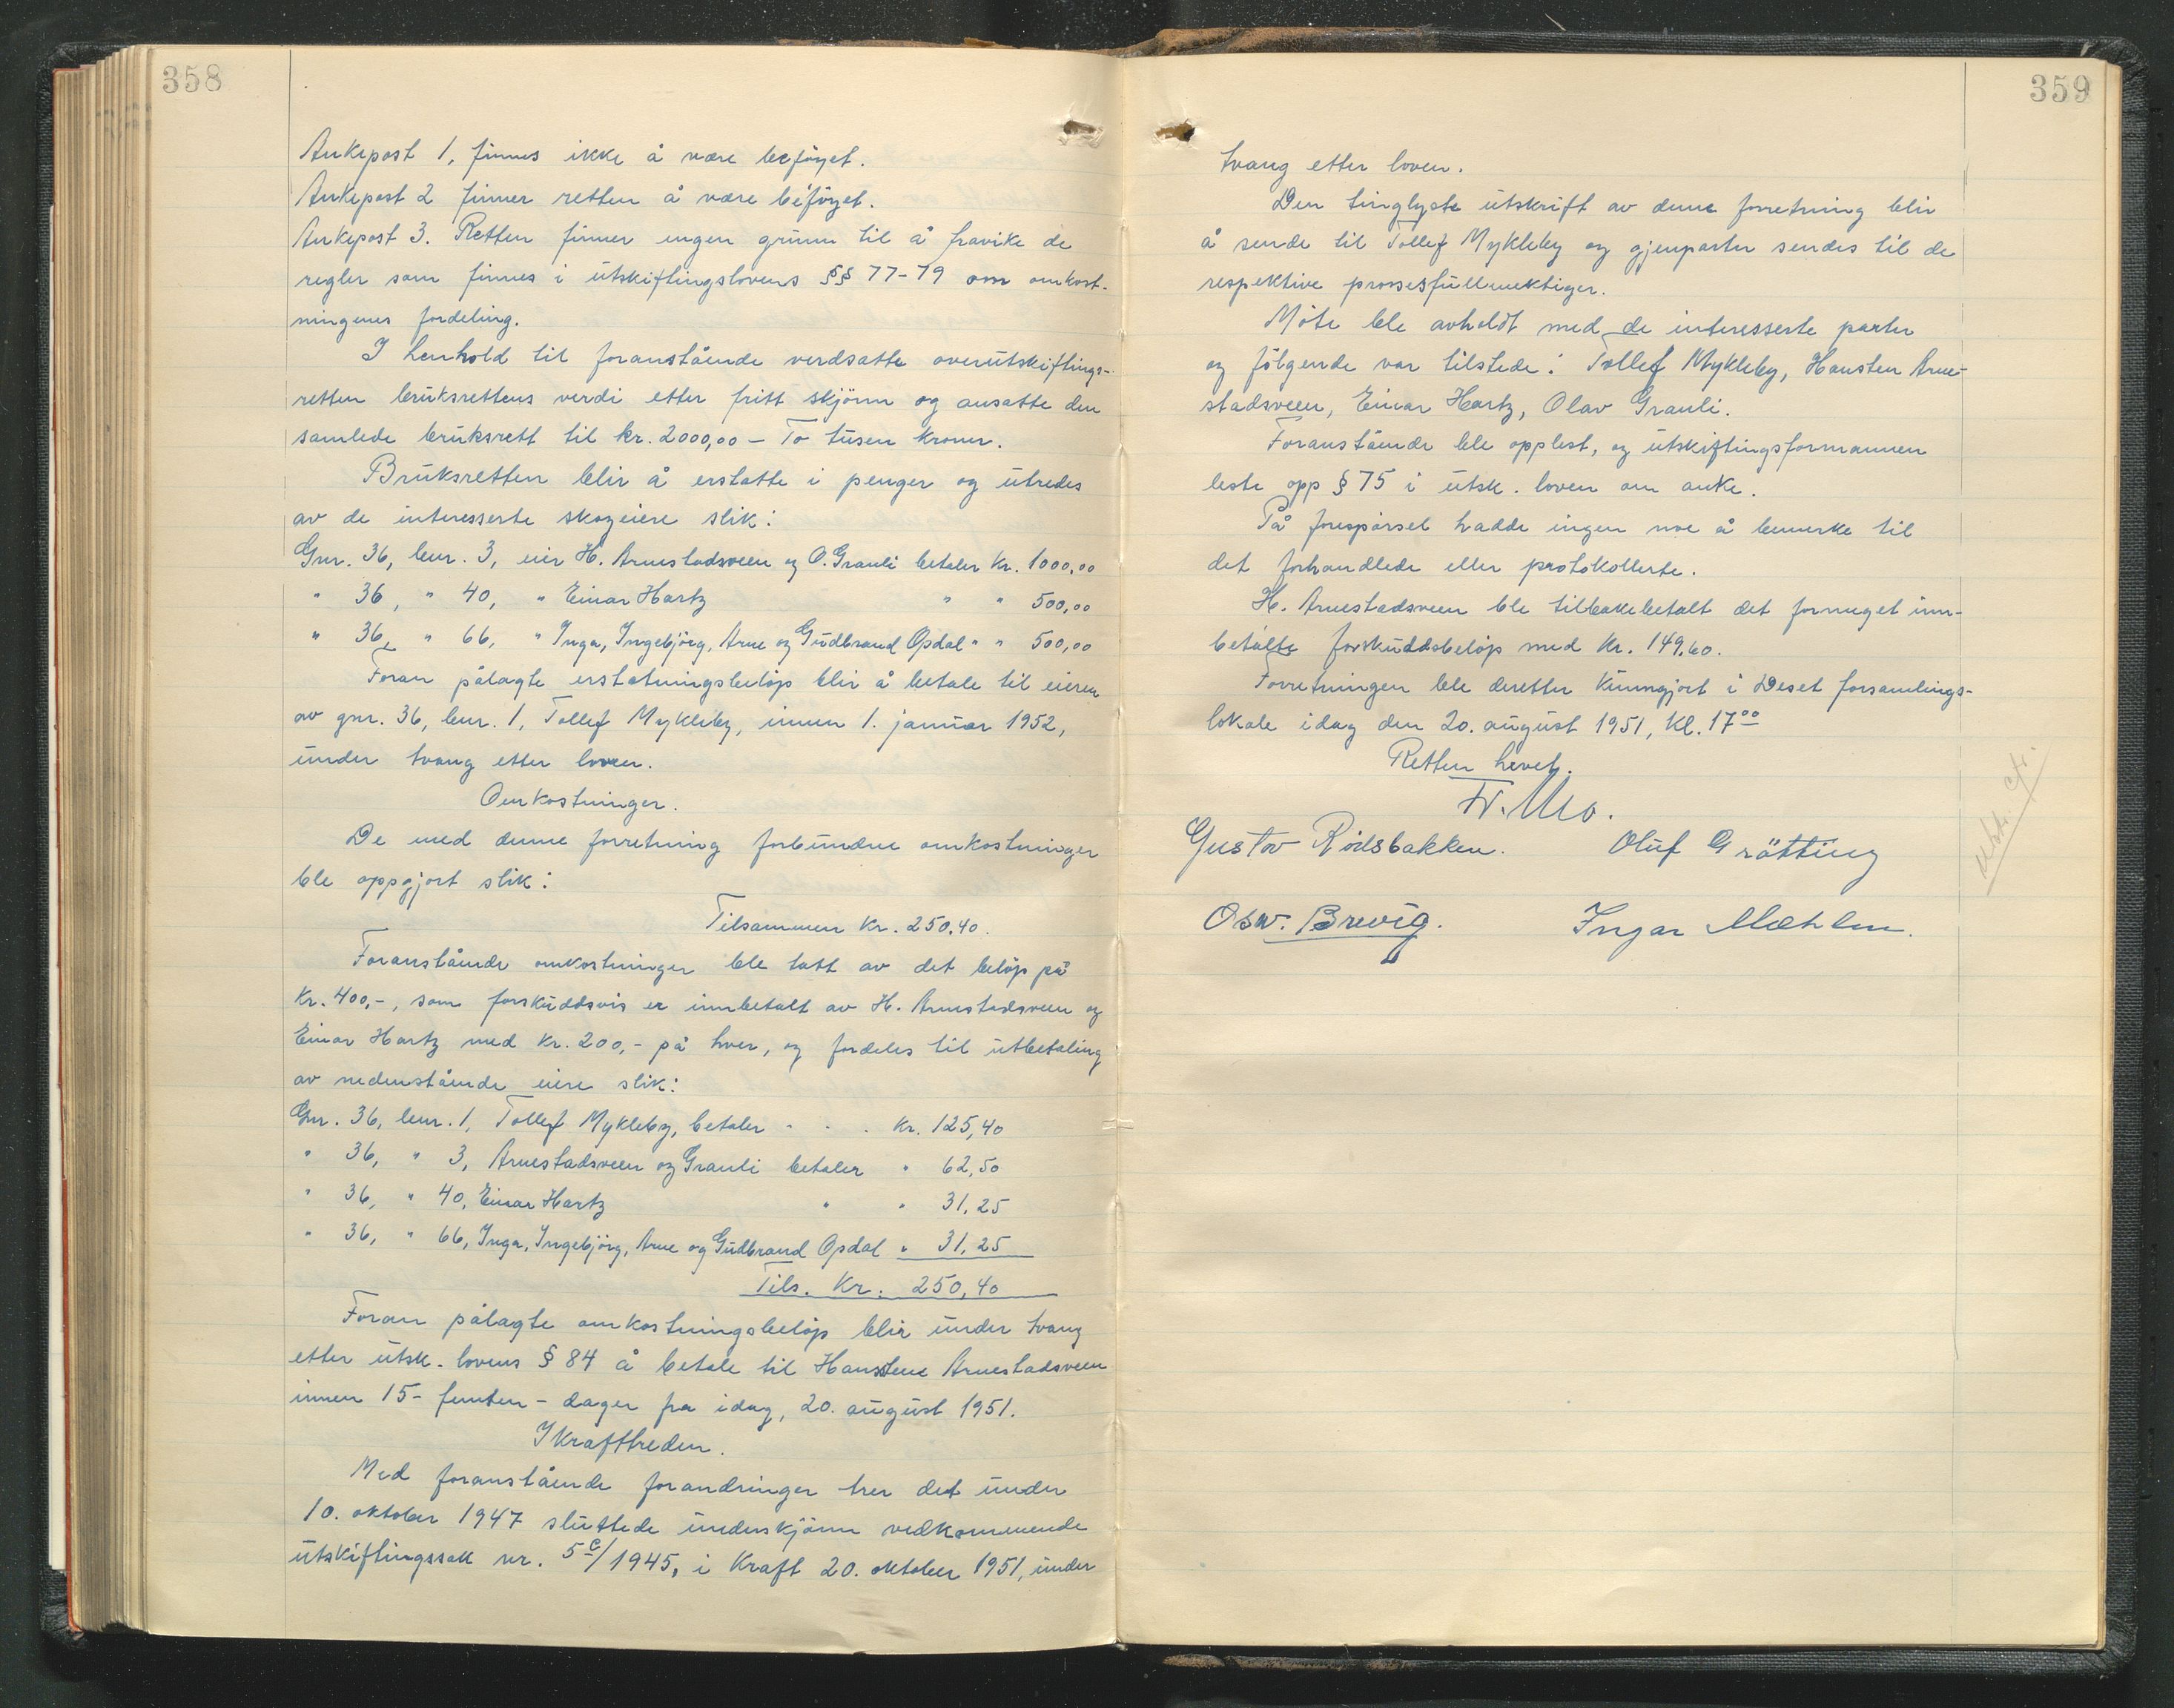 358
Ankepost 1, finnes ikke å være beföyet.
Ankepost 2 finner retten å være beföyet.
Ankepost 3. Retten finner ingen grunn til å fravike de
regler som finnes i utskiftingslovens §§ 77-79 om omkost-
ningenes fordeling.
I henhold til foranstående verdsatte overutskiftings-
retten bruksrettens verdi etter fritt skjönn og ansatte den
samlede bruksrett til kr. 2000,00 - To tusen kroner.
Bruksretten blir å erstatte i penger og utredes
av de interesserte skogeiere slik:
Gnr. 36, bnr. 3, eier H. Arnestadsveen og O. Grauli betaler Kr. 1000,00
" 36, " 40, " Einar Hartz " " 500,00
" 36, " 66, " Inga, Ingebjörg, Arne og Gudbrand Opdal " " 500,00
Foran pålagte erstatningsbelöp blir å betale til eieren
av gnr. 36, bnr. 1, Tollef Mykleby, innen 1. januar 1952,
under tvang etter loven.
Omkostninger.
De med denne forretning forbundne omkostninger
ble oppgjort slik:
Tilsammen Kr. 250,40.
Foranstående omkostninger ble tatt av det belöp på
Kr. 400,-, som forskuddsvis er innbetalt av H. Arnestadsveen og
Einar Hartz med Kr. 200,- på hver, og fordeles til utbetaling
av nedenstående eiere slik:
Gnr. 36, bnr. 1, Tollef Mykleby, betaler - - . Kr. 125,40
" 36, " 3, Arnestadsveen og Grauli betaler " 62,50
" 36, " 40, Einar Hartz " " 31,25
" 36, " 66, Inga, Ingebjörg, Arne og Gudbrand Opdal " 31,25
Tils. Kr. 250,40
Foran pålagte omkostningsbelöp blir under tvang
etter utsk. lovens § 84 å betale til Hansteen Arnestadsveen
innen 15- femten - dager fra idag, 20. august 1951.
Ikrafttreden.
Med foranstående forandringer trer det under
10. oktober 1947 sluttede underskjönn vedkommende
utskiftingssak nr. 5c/1945, i Kraft 20. oktober 1951, under
359
tvang etter loven.
Den tinglyste utskrift av denne forretning blir
å sende til Tollef Mykleby og gjenparter sendes til de
respektive prosesfullmektiger.
Möte ble avholdt med de interesserte parter
og fölgende var tilstede: Tollef Mykleby, Hansten Arne-
stadsveen, Einar Hartz, Olav Grauli.
Foranstående ble opplest, og utskiftingsformannen
leste opp § 75 i utsk. loven om anke.
På forespörsel hadde ingen noe å bemerke til
det forhandlede eller protokollerte.
H. Arnestadsveen ble tilbakebetalt det formeget inn-
betalte forskuddsbelöp med Kr. 149,60.
Forretningen ble deretter Kunngjort i Deset forsamlings-
lokale idag den 20. august 1951, Kl. 17oo
Retten hevet.
H. Mo.
Gustav Rödsbakken. Oluf Grötting
Osv. Brevig. Ingar Mæhlen.